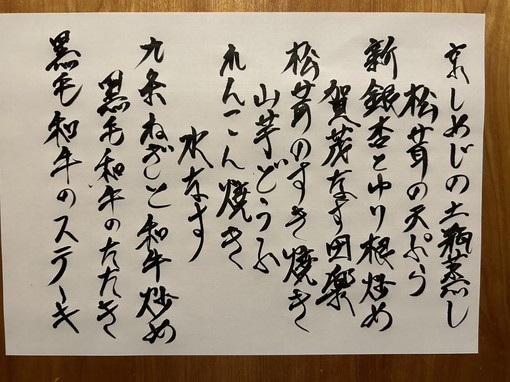 京しめじの土瓶蒸し
松茸の天ぷら
新銀杏とゆり根炒め
賀茂なす田楽
松茸のすき焼き
山芋どうふ
れんこん焼き
水なす
九条ねぎと和牛炒め
黒毛和牛のたたき
黒毛和牛のステーキ